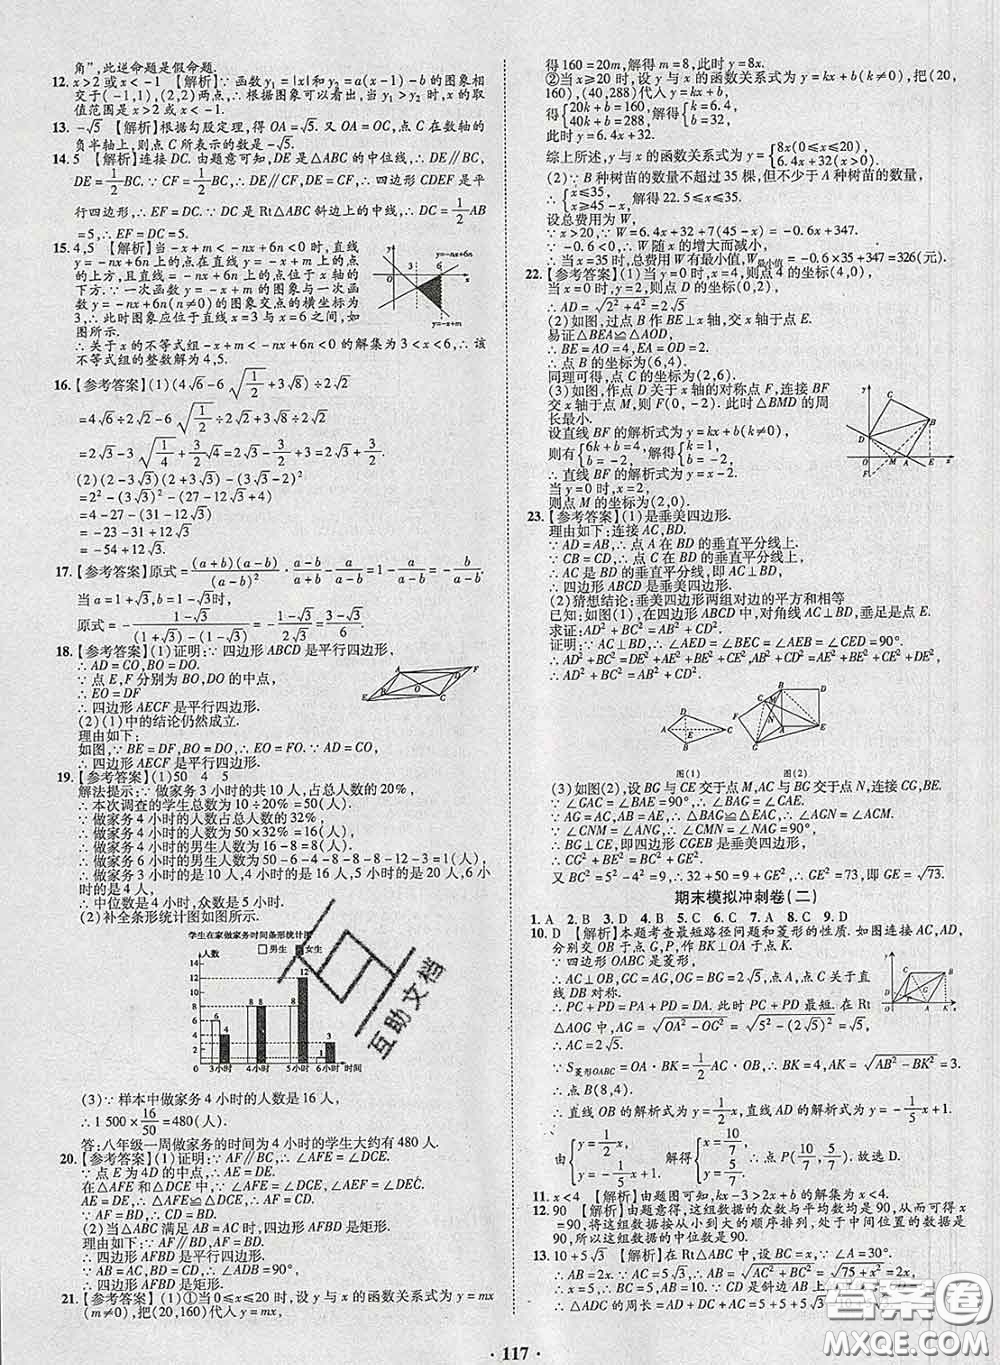 角”,此逆命题是假命题.
12. x>2或x<-1 【解析】∵函数y₁=|x|和y₂=a(x-1)-b的图象相
交于(-1,1),(2,2)两点,∴根据图象可以看出,当y₁>y₂时,x的取
值范围是x>2或x<-1.
13. -√5 【解析】根据勾股定理,得OA=√5.又OA=OC,点C在数轴的
负半轴上,则点C所表示的数是-√5.
14. 5 【解析】连接DC.由题意可知,DE是△ABC的中位线,∴DE∥BC,
DE=1/2BC.∵CF=1/2BC,∴DE∥CF,DE=CF,∴四边形CDEF是平
行四边形,∴EF=DC.∵DC是Rt△ABC斜边上的中线,∴DC=1/2AB
=5,∴EF=DC=5.
15. 4,5 【解析】当-x+m<-nx+6n<0时,直线
y=-nx+6n上的点在直线y=-x+m上的点
的上方,且直线y=-nx+6n上的点在x轴的
下方.∵一次函数y=-x+m的图象与一次函
数y=-nx+6n(n≠0)的图象交点的横坐标为
3,∴此时图象应位于直线x=3与x=6之间,如
图所示.
∴关于x的不等式组-x+m<-nx+6n<0的解集为3<x<6,∴该
不等式组的整数解为4,5.
16. 【参考答案】(1)(4√6-6√(1/2)+3√8)÷2√2
=4√6÷2√2-6√(1/2)÷2√2+3√8÷2√2
=2√3-3√(1/4)+3/2√4=2√3-3/2+3=2√3+3/2.
(2)(2-√3)(2+√3)-(3√3-2)²
=2²-(√3)²-(31-12√3)
=4-27-(31-12√3)
=-23-31+12√3
=-54+12√3.
17. 【参考答案】原式=(a+b)(a-b)/(a-b)²·(a-b)/a-b/a=(a+b)/a-b/a
当a=1+√3,b=1-√3时,
原式=-(1-√3)/((1+√3)-(1-√3))=-(1-√3)/(2√3)=(3-√3)/6.
18. 【参考答案】(1)证明:∵四边形ABCD是平行四边形,
∴AO=CO,BO=DO.
∵点E,F分别为BO,DO的中点,
∴EO=DF
∴四边形AECF是平行四边形.
(2)(1)中的结论仍然成立.
理由如下:
如图,∵BE=DF,BO=DO,∴EO=FO.
∵AO=CO,∴四边形AECF是平行四边形.
19. 【参考答案】(1)50 4 5
解法提示:∵做家务3小时的共10人,占总人数的20%,
∴本次调查的学生总数为10÷20%=50(人).
∵做家务4小时的人数占总人数的32%,
∴做家务4小时的人数为50×32%=16(人).
∴做家务4小时的男生人数为16-8=8(人).
∴做家务6小时的男生人数为50-6-4-8-8-8-12-3=1(人).
∵做家务3小时的是10人,4小时的是16人,5小时的是20人,6小时
的是4人,∴中位数是4小时,众数是5小时.
(2)补全条形统计图如图所示.
学生在家做家务时间条形统计图
人数 □男生 ■女生
14
12
10
8
6
4
2
0
6 4 8 8 8 12 1 3
3小时 4小时 5小时 6小时 时间
(3)∵样本中做家务4小时的人数是16人,
∴1 500×16/50=480(人).
答:八年级一周做家务的时间为4小时的学生大约有480人.
20. 【参考答案】(1)证明:∵AF∥BC,∴∠AFE=∠DCE.
∵点E为AD的中点,∴AE=DE.
在△AFE和△DCE中,∠AFE=∠DCE,∠AEF=∠DEC,
∴△AFE≌△DCE,∴AF=CD.
∵AF=BD,∴BD=CD.
(2)当△ABC满足AB=AC时,四边形AFBD是矩形.
理由如下:∵AF∥BD,AF=BD,
∴四边形AFBD是平行四边形.
∵AB=AC,BD=DC,∴∠ADB=90°.
∴四边形AFBD是矩形.
21. 【参考答案】(1)①当0≤x≤20时,设y与x的函数关系式为y=mx
(m≠0),把(20,160)代入y=mx,
得160=20m,解得m=8,此时y=8x.
②当x≥20时,设y与x的函数关系式为y=kx+b(k≠0),把(20,
160),(40,288)代入y=kx+b,
得{20k+b=160, 40k+b=288, 解得{k=6.4, b=32,
此时y=6.4x+32.
综上所述,y与x的函数关系式为y={8x(0≤x≤20) 6.4x+32(x>20).
(2)∵B种树苗的数量不超过35棵,但不少于A种树苗的数量,
∴{x≤35, x≥45-x, 解得22.5≤x≤35.
设总费用为W,
∵x>20,∴W=6.4x+32+7(45-x)=-0.6x+347.
∵-0.6<0,∴W随x的增大而减小,
∴当x=35时,总费用W有最小值,W最小值=-0.6×35+347=326(元).
22. 【参考答案】(1)当y=0时,x=4,则点A的坐标(4,0),
当x=0时,y=2,则点D的坐标(0,2),
∴AD=√(2²+4²)=2√5
(2)如图,过点B作BE⊥x轴,交x轴于点E.
易证△BEA≌△AOD,
∴BE=AO=4,AE=DO=2,
∴点B的坐标为(6,4).
同理可得,点C的坐标为(2,6).
(3)如图,作点D关于x轴的对称点F,连接BF
交x轴于点M,则F(0,-2).此时△BMD的周
长最小.
设直线BF的解析式为y=kx+b(k≠0),
则有{6k+b=4, b=-2, 解得{k=1, b=-2,
∴直线BF的解析式为y=x-2.
当y=0时,x=2,
∴点M的坐标为(2,0).
23. 【参考答案】(1)是垂美四边形.
理由如下:连接AC,BD.
∵AD=AB,∴点A在BD的垂直平分线上.
∵CB=CD,∴点C在BD的垂直平分线上.
∴AC是BD的垂直平分线,∴AC⊥BD.
∴四边形ABCD是垂美四边形.
(2)猜想结论:垂美四边形两组对边的平方和相等
已知:如图(1),在四边形ABCD中,对角线AC⊥BD,垂足是点E.
求证:AD²+BC²=AB²+CD².
证明:∵AC⊥BD,∴∠AED=∠BEC=∠AEB=∠CED=90°,
∴AD²+BC²=DE²+AE²+BE²+CE²,AB²+CD²=AE²+BE²+CE²+DE²,
∴AD²+BC²=AB²+CD².
图(1) 图(2)
(3)如图(2),设BG与CE交于点M,AC与BG交于点N,连接CG,BE.
∵∠GAC=∠BAE=90°,∴∠BAG=∠CAE.
∵AG=AC,AB=AE,∴△BAG≌△EAC,∴∠AGN=∠ACM.
∵∠CNM=∠ANG,∴∠CMN=∠NAG=90°,
∴BG⊥CE,即四边形CGEB是垂美四边形.
∴CG²+BE²=BC²+GE².
又BC²=BE²,∴32+50=9+GE²,∴GE²=73,即GE=√73.
期末模拟冲刺卷(二)
1. A 2. B 3. D 4. D 5. C 6. C 7. A 8. C 9. D
10. D 【解析】本题考查最短路径问题和菱形的性质.如图连接AC,AD,
分别交OB于点G,P,作BK⊥OA于点K.
∵四边形OABC是菱形,
∴AC⊥OB,GC=AG,OG=BG=2√5,点A,点C关于直
线OB对称.
∴PC+PD=PA+PD=DA.此时PC+PD最短.在Rt
△AOG中,AG=√(OA²-OG²)=√(5²-(2√5)²)=√5,
∴AC=2√5.
∵S菱形OABC=OA·BK=1/2AC·OB,∴BK=4,AK=√(AB²-BK²)=3.
∴点B(8,4).
∴直线OB的解析式为y=1/2x,直线AD的解析式为y=-1/5x+1.
由{y=1/2x, y=-1/5x+1, 解得{x=10/7, y=5/7, ∴点P(10/7,5/7).故选D.
11. x<4 【解析】由题图可知,kx-3>2x+b的解集为x<4.
12. 90 【解析】由题意得,这组数据的众数与平均数均为90,从而可求得x
=90,将这组数据按从小到大的顺序排列,处于中间位置的数据为
90,所以这组数据的中位数是90.
13. 10+5√3 【解析】在Rt△ABC中,设BC=x,∵∠A=30°.
∴AB=2BC=2x,∴AB=√(AC²+BC²)=√(75+x²)=2x,
∴x=5,∴AB=10.
∴△ADC的周长=AD+DC+AC=AB+AC=10+5√3.
· 117 ·
互助文档
答案圈
MXQE.COM